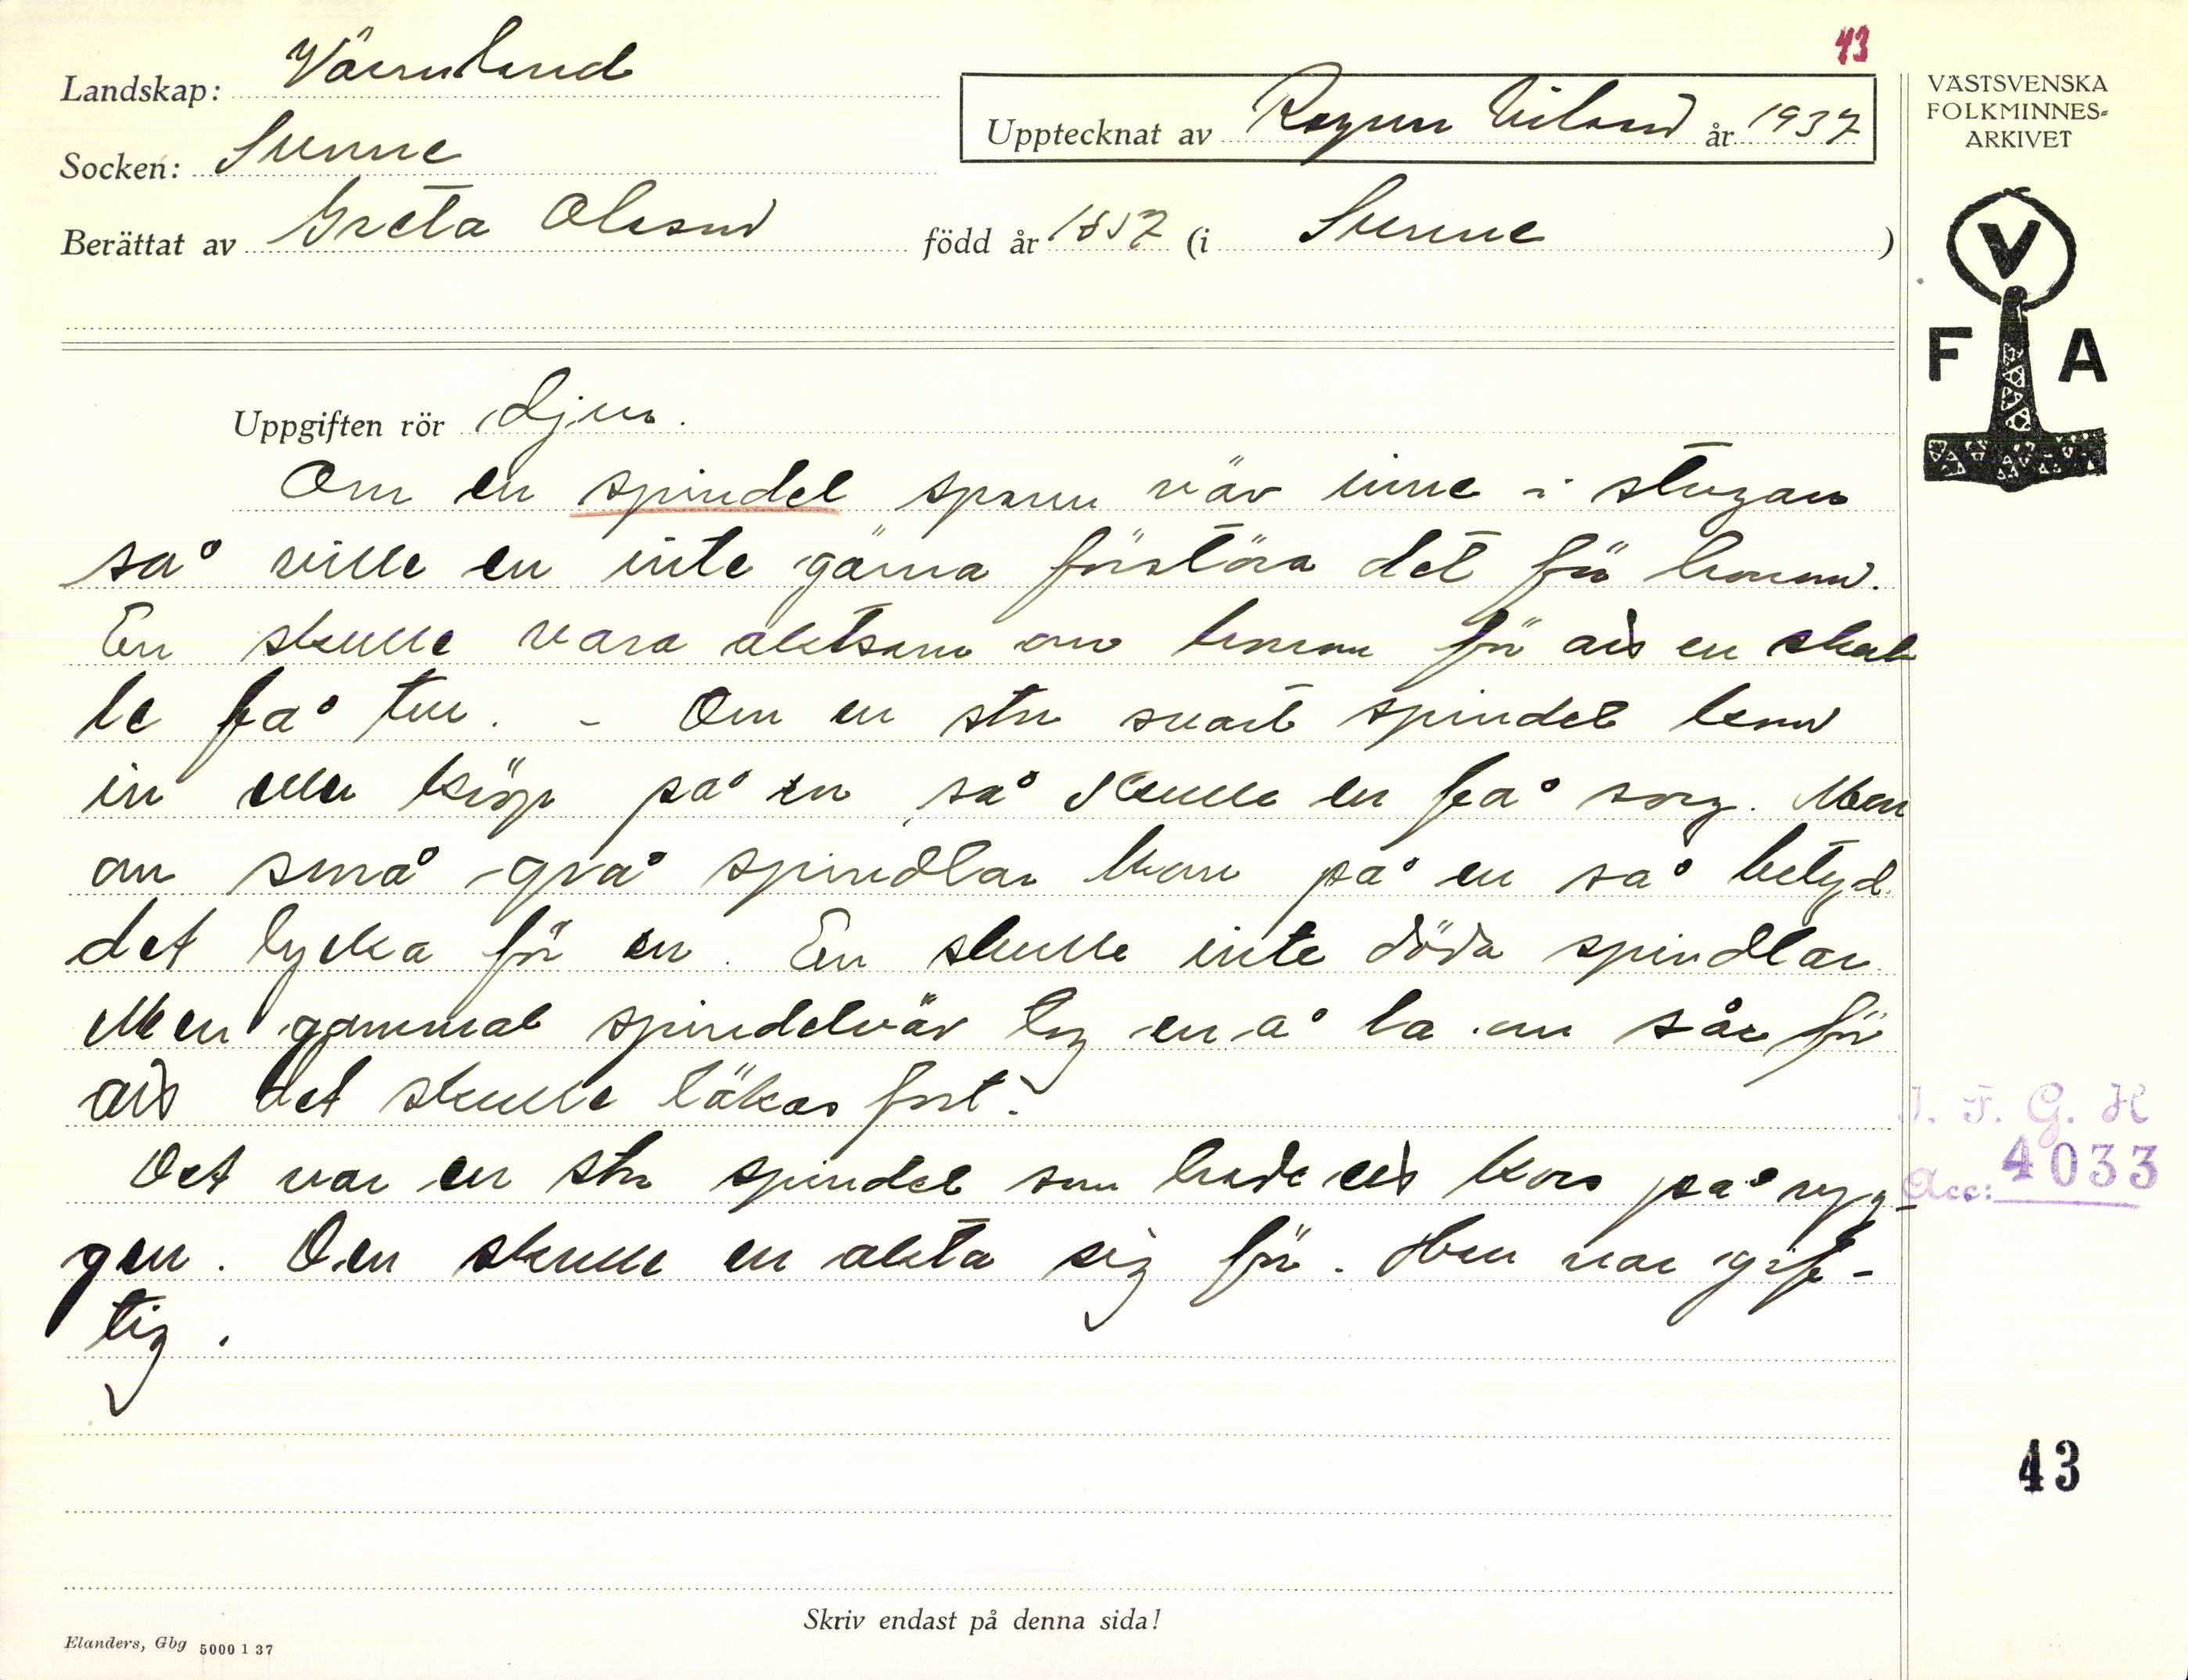 43
Landskap: Värmland
Socken: Sunne
Upptecknat av Ragnar Nilsson år 1937
Berättat av Greta Olsson född år 1857 (i Sunne)
VÄSTSVENSKA
FOLKMINNES-
ARKIVET
V
F A
Uppgiften rör djur.
Om en spindel spann väv inne i stugan
så ville en inte gärna förstöra det för honom.
En skulle vara aktsam om honom för att en skul
le få tur. - Om en stor svart spindel kom
in eller kröp på en så skulle en få sorg. Men
om små grå spindlar kom på en så betyd
det lycka för en. En skulle inte döda spindlar.
Men gammal spindelväv tog en å la om sår för
att det skulle läkas fort.
Det var en stor spindel som hade ett kors på ryg-
gen. Den skulle en akta sig för. Han var gif-
tig.
I. F. G. H
Acc: 4033
43
Skriv endast på denna sida!
Elanders, Gbg 5000 1 37